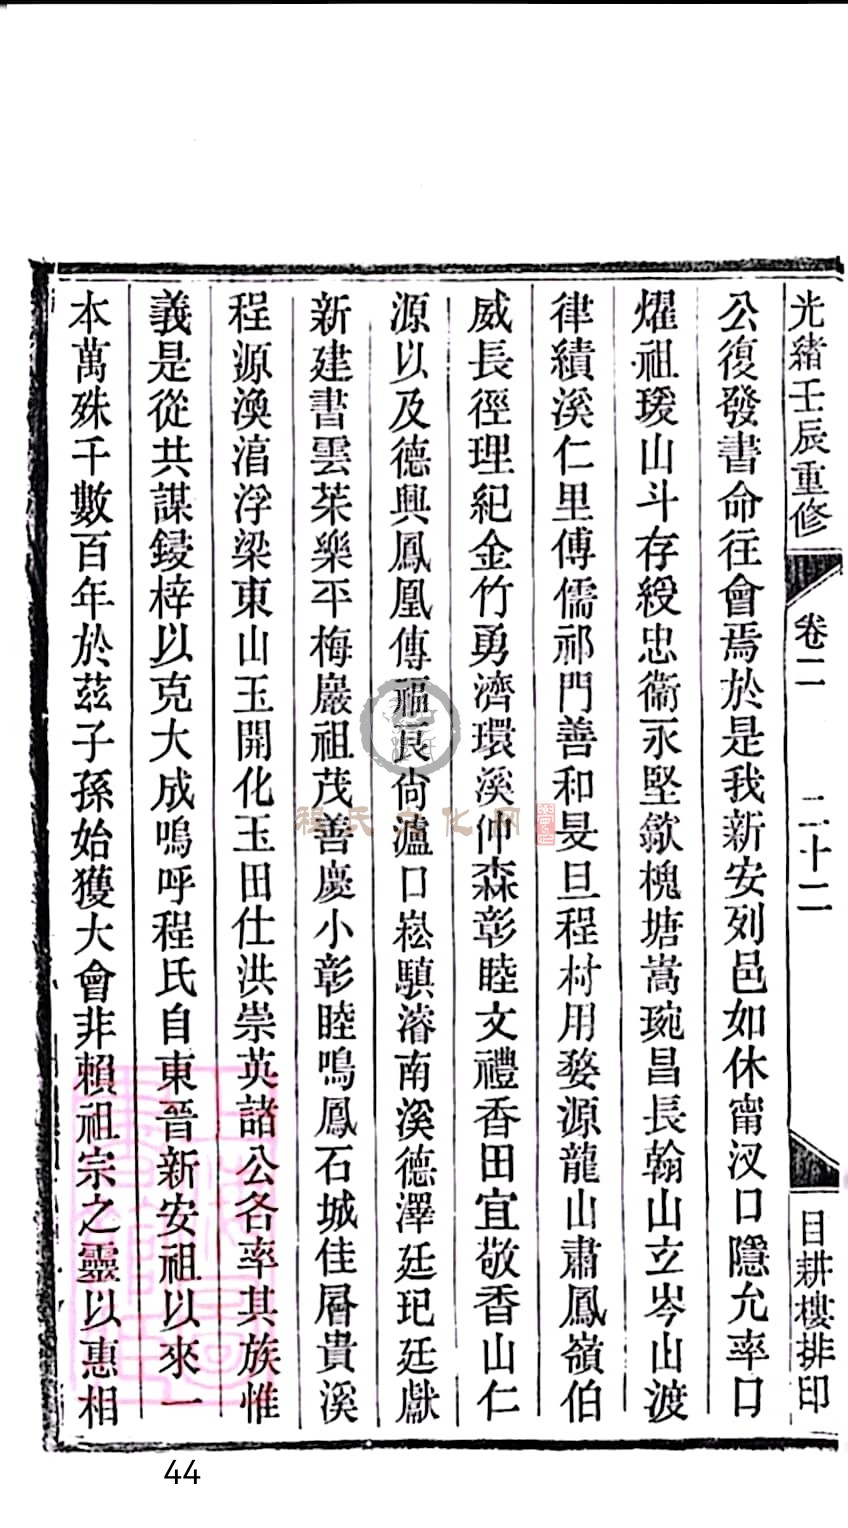 光緒壬辰重修 卷二 二十二 目耕樓排印
公復發書命往會焉於是我新安列邑如休甯汊口隱允率口
燿祖瑗山斗存綬忠衞永堅歙槐塘嵩琬昌長翰山立岑山渡
律績溪仁里傅儒祁門善和旻旦程村用婺源龍山肅鳳嶺伯
威長徑理紀金竹勇濟環溪仲森彰睦文禮香田宜敬香山仁
源以及德興鳳凰傳福良尙瀘口崧驥濬南溪德澤廷玘廷獻
新建書雲茱樂平梅巖祖茂善慶小彰睦鳴鳳石城佳層貴溪
程源渙㵎浮梁東山玉開化玉田仕洪崇英諸公各率其族惟
義是從共謀鋟梓以克大成嗚呼程氏自東晉新安祖以來一
本萬殊千數百年於茲子孫始獲大會非賴祖宗之靈以惠相
程氏文化网
44